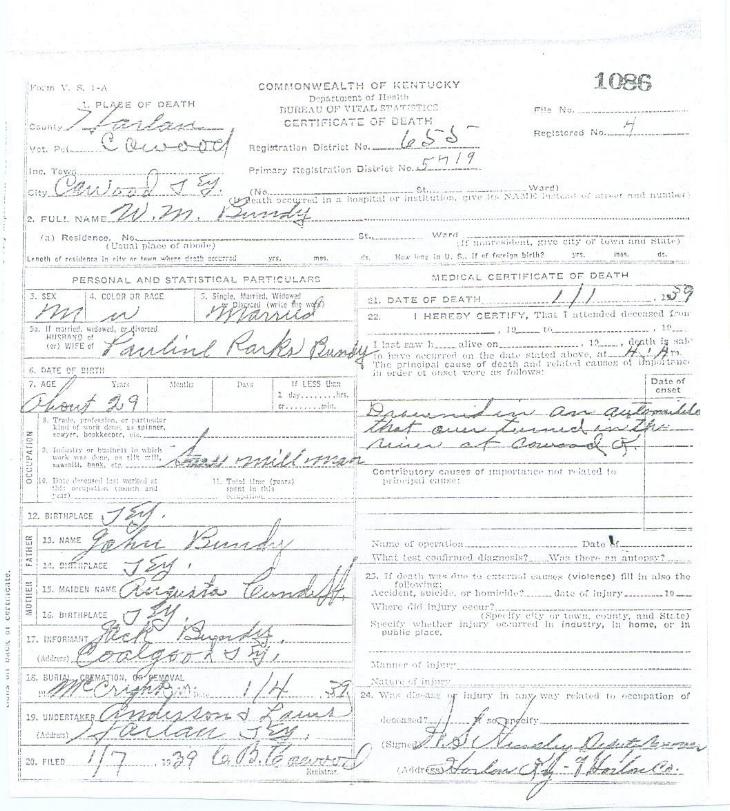 1086
Form V. S. 1-A
COMMONWEALTH OF KENTUCKY
Department of Health
BUREAU OF VITAL STATISTICS
CERTIFICATE OF DEATH
File No.
Registered No. 4
1. PLACE OF DEATH
County Harlan
Vot. Pct. Cawood
Registration District No. 655
Inc. Town
Primary Registration District No. 5719
City Cawood Ky. (No. St. Ward)
(If death occurred in a hospital or institution, give its NAME instead of street and number)
2. FULL NAME W. M. Bundy
(a) Residence, No. St., Ward
(Usual place of abode) (If nonresident, give city or town and State)
Length of residence in city or town where death occurred yrs. mos. ds. How long in U. S., if of foreign birth? yrs. mos. ds.
PERSONAL AND STATISTICAL PARTICULARS
3. SEX M
4. COLOR OR RACE W
5. Single, Married, Widowed or Divorced (write the word) Married
5a. If married, widowed, or divorced
HUSBAND of
(or) WIFE of Pauline Parks Bundy
6. DATE OF BIRTH
7. AGE Years Months Days If LESS than
1 day, hrs.
or min.
About 29
OCCUPATION
8. Trade, profession, or particular
kind of work done, as spinner,
sawyer, bookkeeper, etc.
9. Industry or business in which
work was done, as silk mill,
sawmill, bank, etc. mill man
10. Date deceased last worked at
this occupation (month and
year)
11. Total time (years)
spent in this
occupation
12. BIRTHPLACE Ky.
FATHER
13. NAME John Bundy
14. BIRTHPLACE Ky.
MOTHER
15. MAIDEN NAME Augusta Cundiff.
16. BIRTHPLACE Ky.
17. INFORMANT Jack Bundy.
(Address) Coalgood Ky.
18. BURIAL, CREMATION, OR REMOVAL
Date 1/4 39
19. UNDERTAKER Anderson & Laws
(Address) Harlan Ky.
20. FILED 1/7 1939 C. B. Cawood
Registrar.
MEDICAL CERTIFICATE OF DEATH
21. DATE OF DEATH 1/1, 1939
22. I HEREBY CERTIFY, That I attended deceased from
, 19 to , 19
I last saw h alive on , 19 , death is said
to have occurred on the date stated above, at 4:A m.
The principal cause of death and related causes of importance
in order of onset were as follows:
Date of
onset
Drownd in an automobile
that over turned in the
river at Cawood K.
Contributory causes of importance not related to
principal cause:
Name of operation Date of
What test confirmed diagnosis? Was there an autopsy?
23. If death was due to external causes (violence) fill in also the
following:
Accident, suicide, or homicide? date of injury 19
Where did injury occur?
(Specify city or town, county, and State)
Specify whether injury occurred in industry, in home, or in
public place.
Manner of injury
Nature of injury
24. Was disease or injury in any way related to occupation of
deceased? If so, specify
(Signed) Deputy Coroner
(Address) Harlan Ky - Harlan Co.